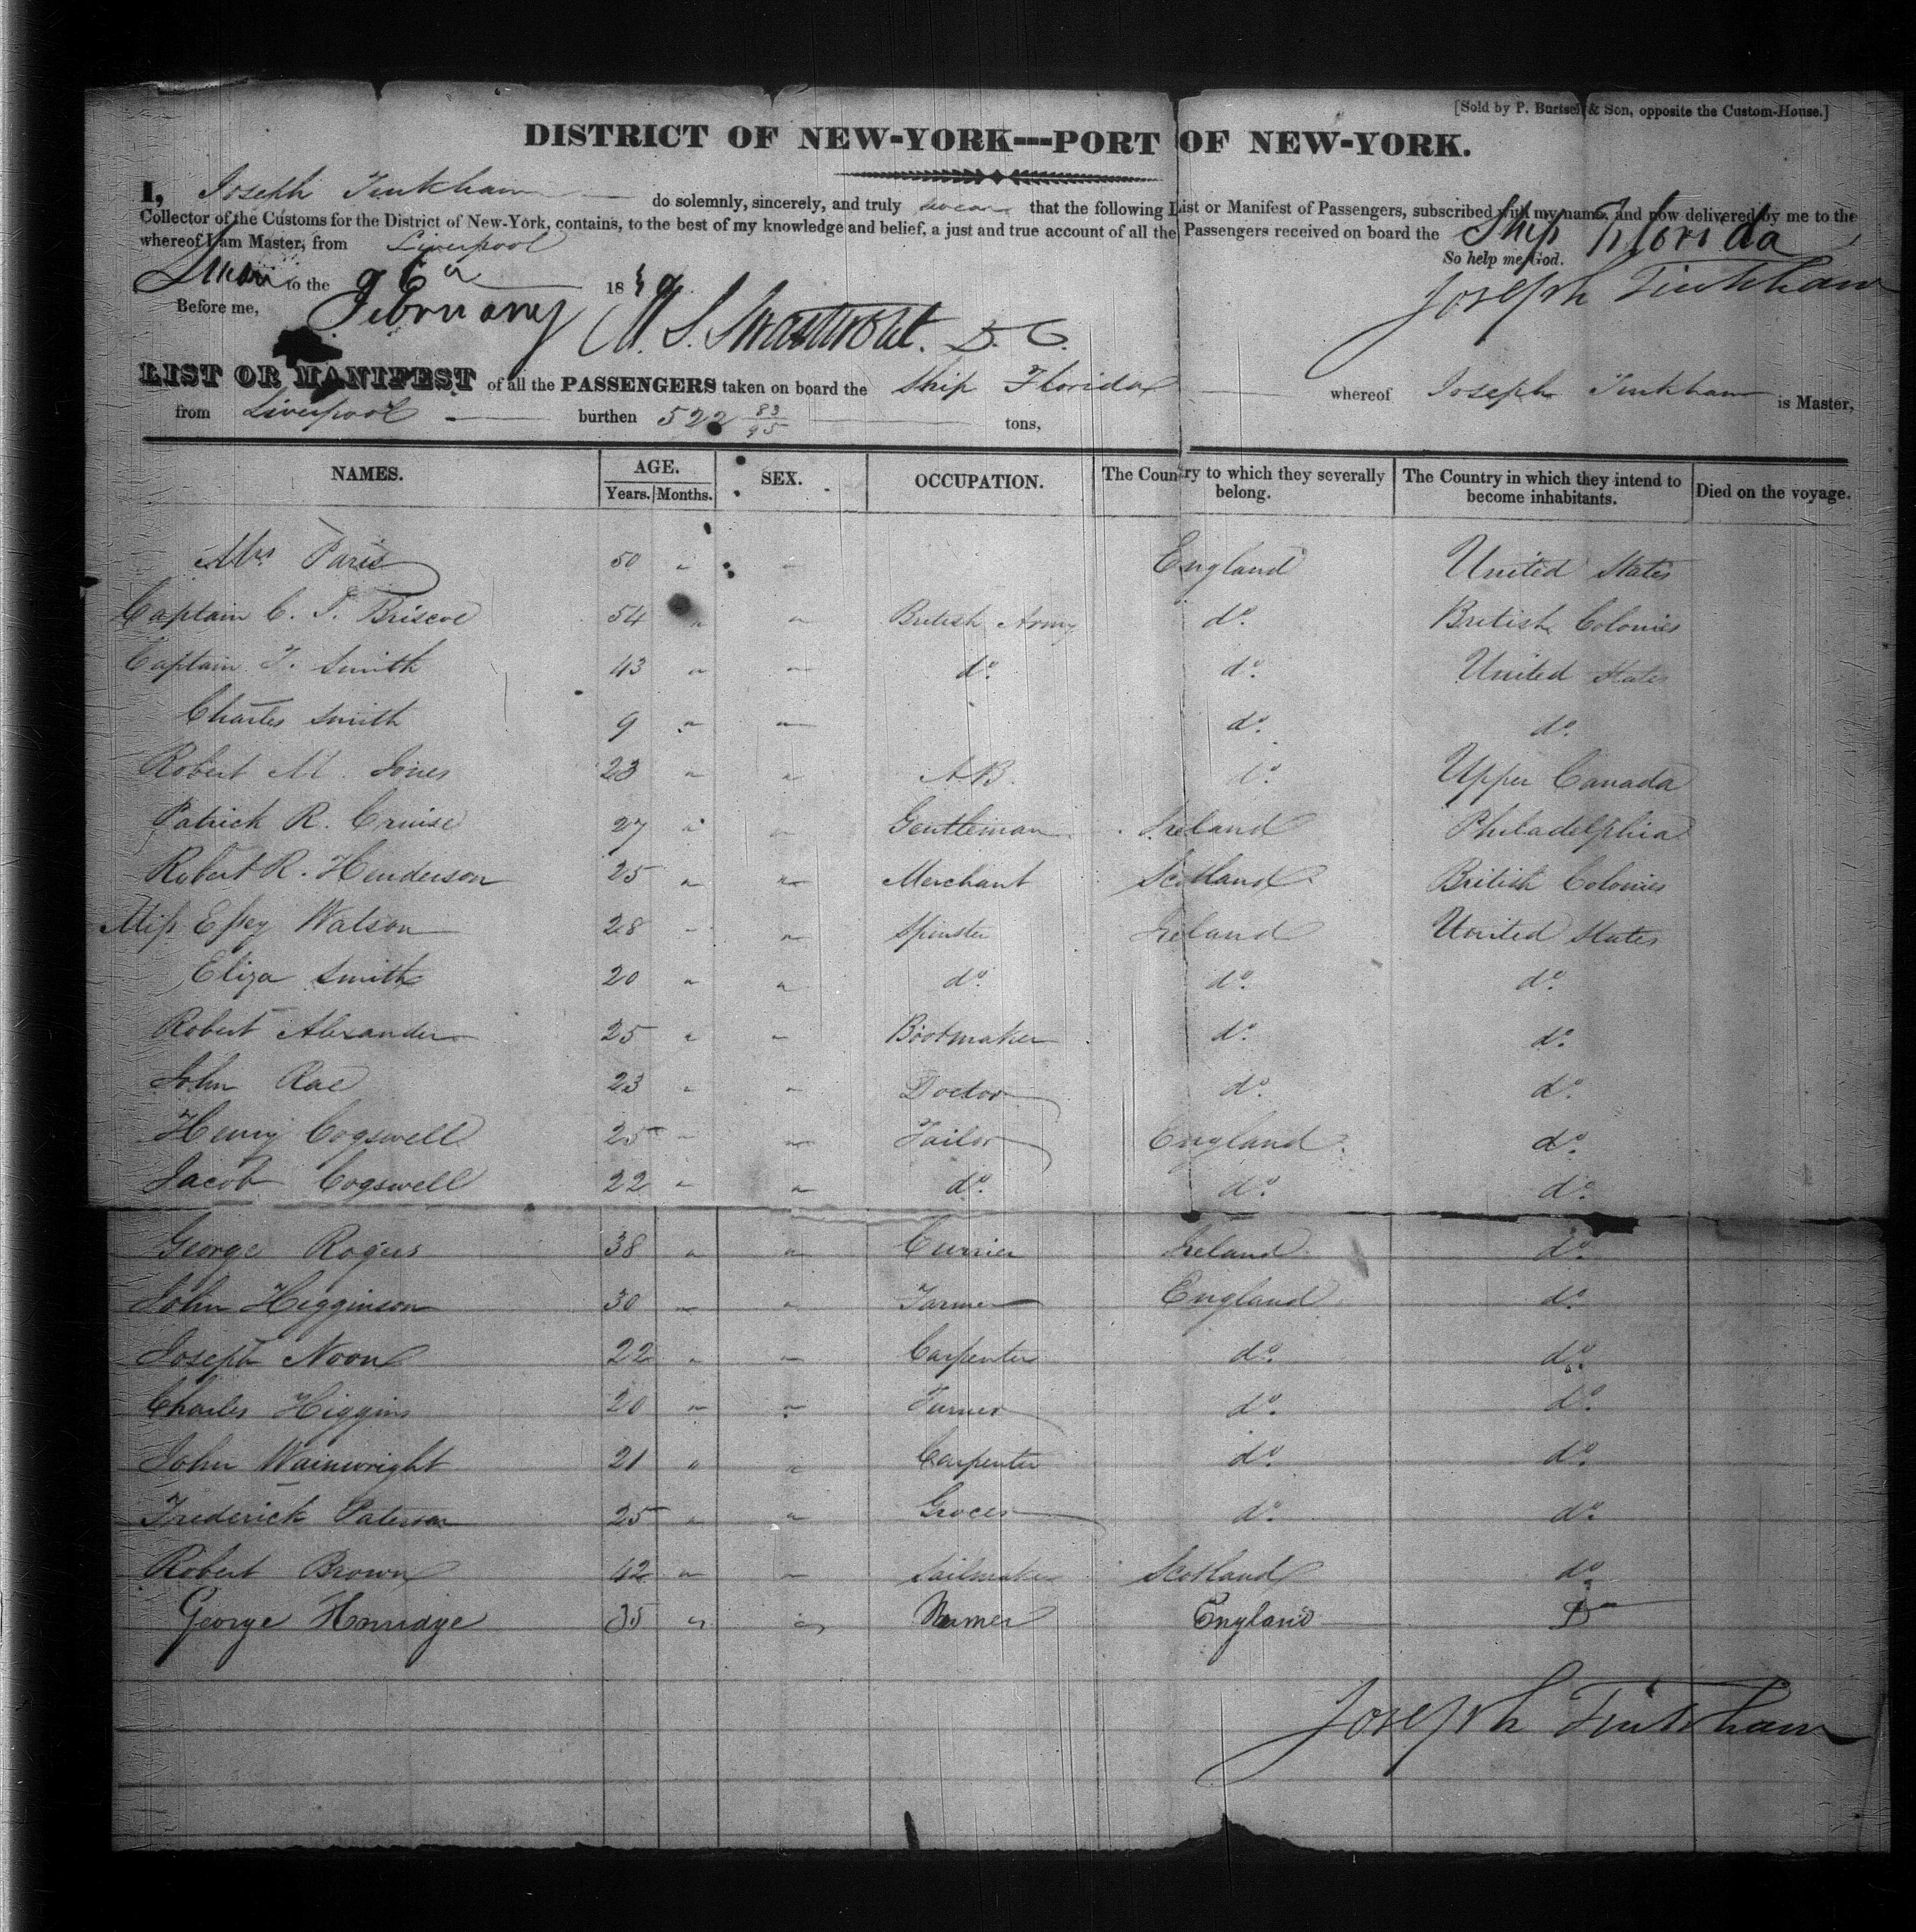 [Sold by P. Burtsell & Son, opposite the Custom-House.]
DISTRICT OF NEW-YORK---PORT OF NEW-YORK.
I, Joseph Tinkham do solemnly, sincerely, and truly swear that the following List or Manifest of Passengers, subscribed with my name, and now delivered by me to the
Collector of the Customs for the District of New-York, contains, to the best of my knowledge and belief, a just and true account of all the Passengers received on board the Ship Florida
whereof I am Master, from Liverpool
So help me God.
Sworn to the 6th February 18
Joseph Tinkham
Before me, M. S. Swartwout. D. C.
LIST OR MANIFEST of all the PASSENGERS taken on board the Ship Florida whereof Joseph Tinkham is Master,
from Liverpool burthen 522 83/95 tons,
NAMES. AGE. SEX. OCCUPATION. The Country to which they severally belong. The Country in which they intend to become inhabitants. Died on the voyage.
Years. Months.
Mrs Paris 50 " " England United States
Captain C. T. Briscoe 54 " " British Army do. British Colonies
Captain T. Smith 43 " " do. do. United States
Charles Smith 9 " " do. do.
Robert M. Jones 23 " " A B. do. Upper Canada
Patrick R. Cruise 27 " " Gentleman Ireland Philadelphia
Robert R. Henderson 25 " " Merchant Scotland British Colonies
Miss Essey Watson 28 " " Spinster Ireland United States
Eliza Smith 20 " " do. do. do.
Robert Alexander 25 " " Bootmaker do. do.
John Rae 23 " " Doctor do. do.
Henry Cogswell 25 " " Tailor England do.
Jacob Cogswell 22 " " do. do. do.
George Rogers 38 " " Currier Ireland do.
John Higginson 30 " " Farmer England do.
Joseph Noon 22 " " Carpenter do. do.
Charles Higgins 20 " " Turner do. do.
John Wainwright 21 " " Carpenter do. do.
Frederick Paterson 25 " " Grocer do. do.
Robert Brown 42 " " Sailmaker Scotland do.
George Horridge 35 " " England Do
Joseph Tinkham